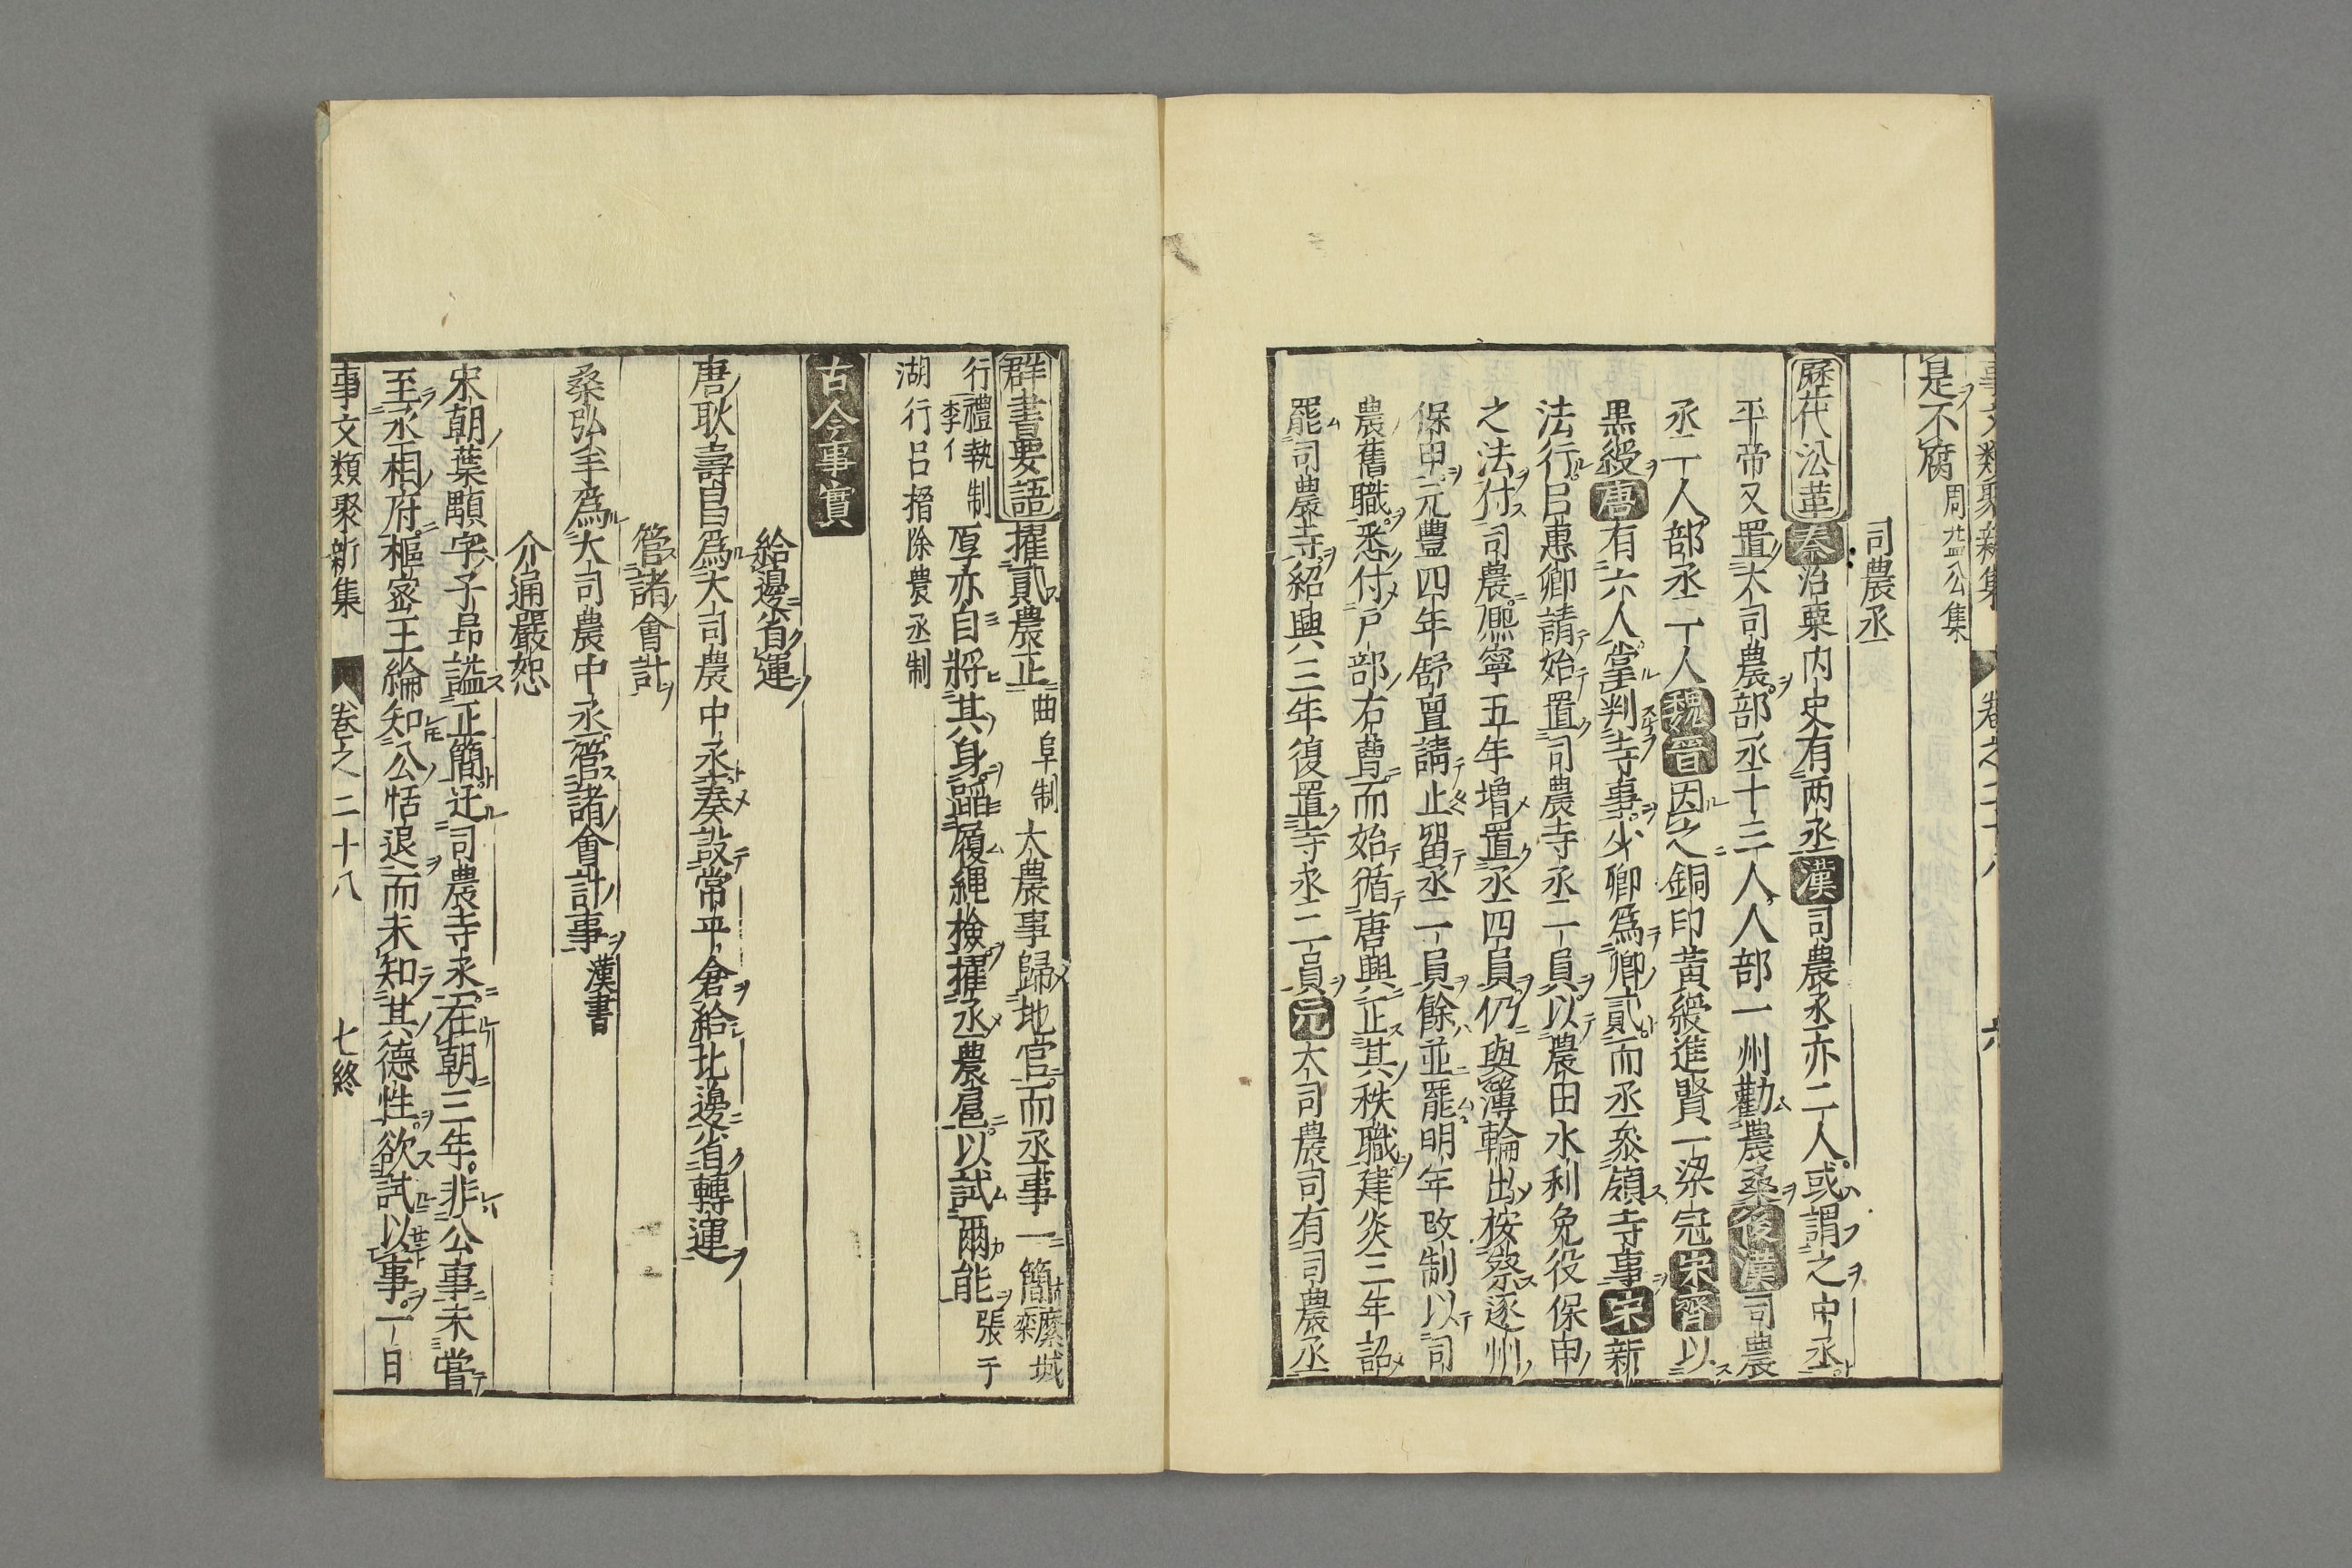 是不腐周益公集
司農丞
歷代沿革秦治粟内史有两丞漢司農丞亦二人或謂之中丞
平帝又置大司農部丞十三人人部一州勸農桑後漢司農
丞一人部丞一人魏晉因之銅印黃綬進賢一梁冠宋齊以
黒綬唐有六人掌判寺事少卿爲卿貳而丞叅領寺事宋新
法行吕惠卿請始置司農寺丞一員以農田水利免役保申
之法付司農熈寧五年增置丞四員仍與簿輪出按察逐州
保申元豐四年舒亶請止留丞一員餘並罷明年改制以司
農舊職悉付戸部右曹而始循唐興正其秩職建炎三年詔
罷司農寺紹興三年復置寺丞二員元大司農司有司農丞
群書要語擢貳農正曲阜制大農事歸地官而丞事一簡麋城
行禮執制厚亦自將其身蹈履繩檢擢丞農扈以試爾能張于
湖行吕搢除農丞制
古今事實
給邊省運
唐耿壽昌爲大司農中丞奏設常平倉給北邊省轉運
管諸會計
桑弘羊爲大司農中丞管諸會計事漢書
介通嚴恕
宋朝葉顒字子昻謚正簡迁司農寺丞在朝三年非公事未嘗
至丞相府樞密王綸知公恬退而未知其德性欲試以事一日
事文類聚新集 卷之二十八 七終